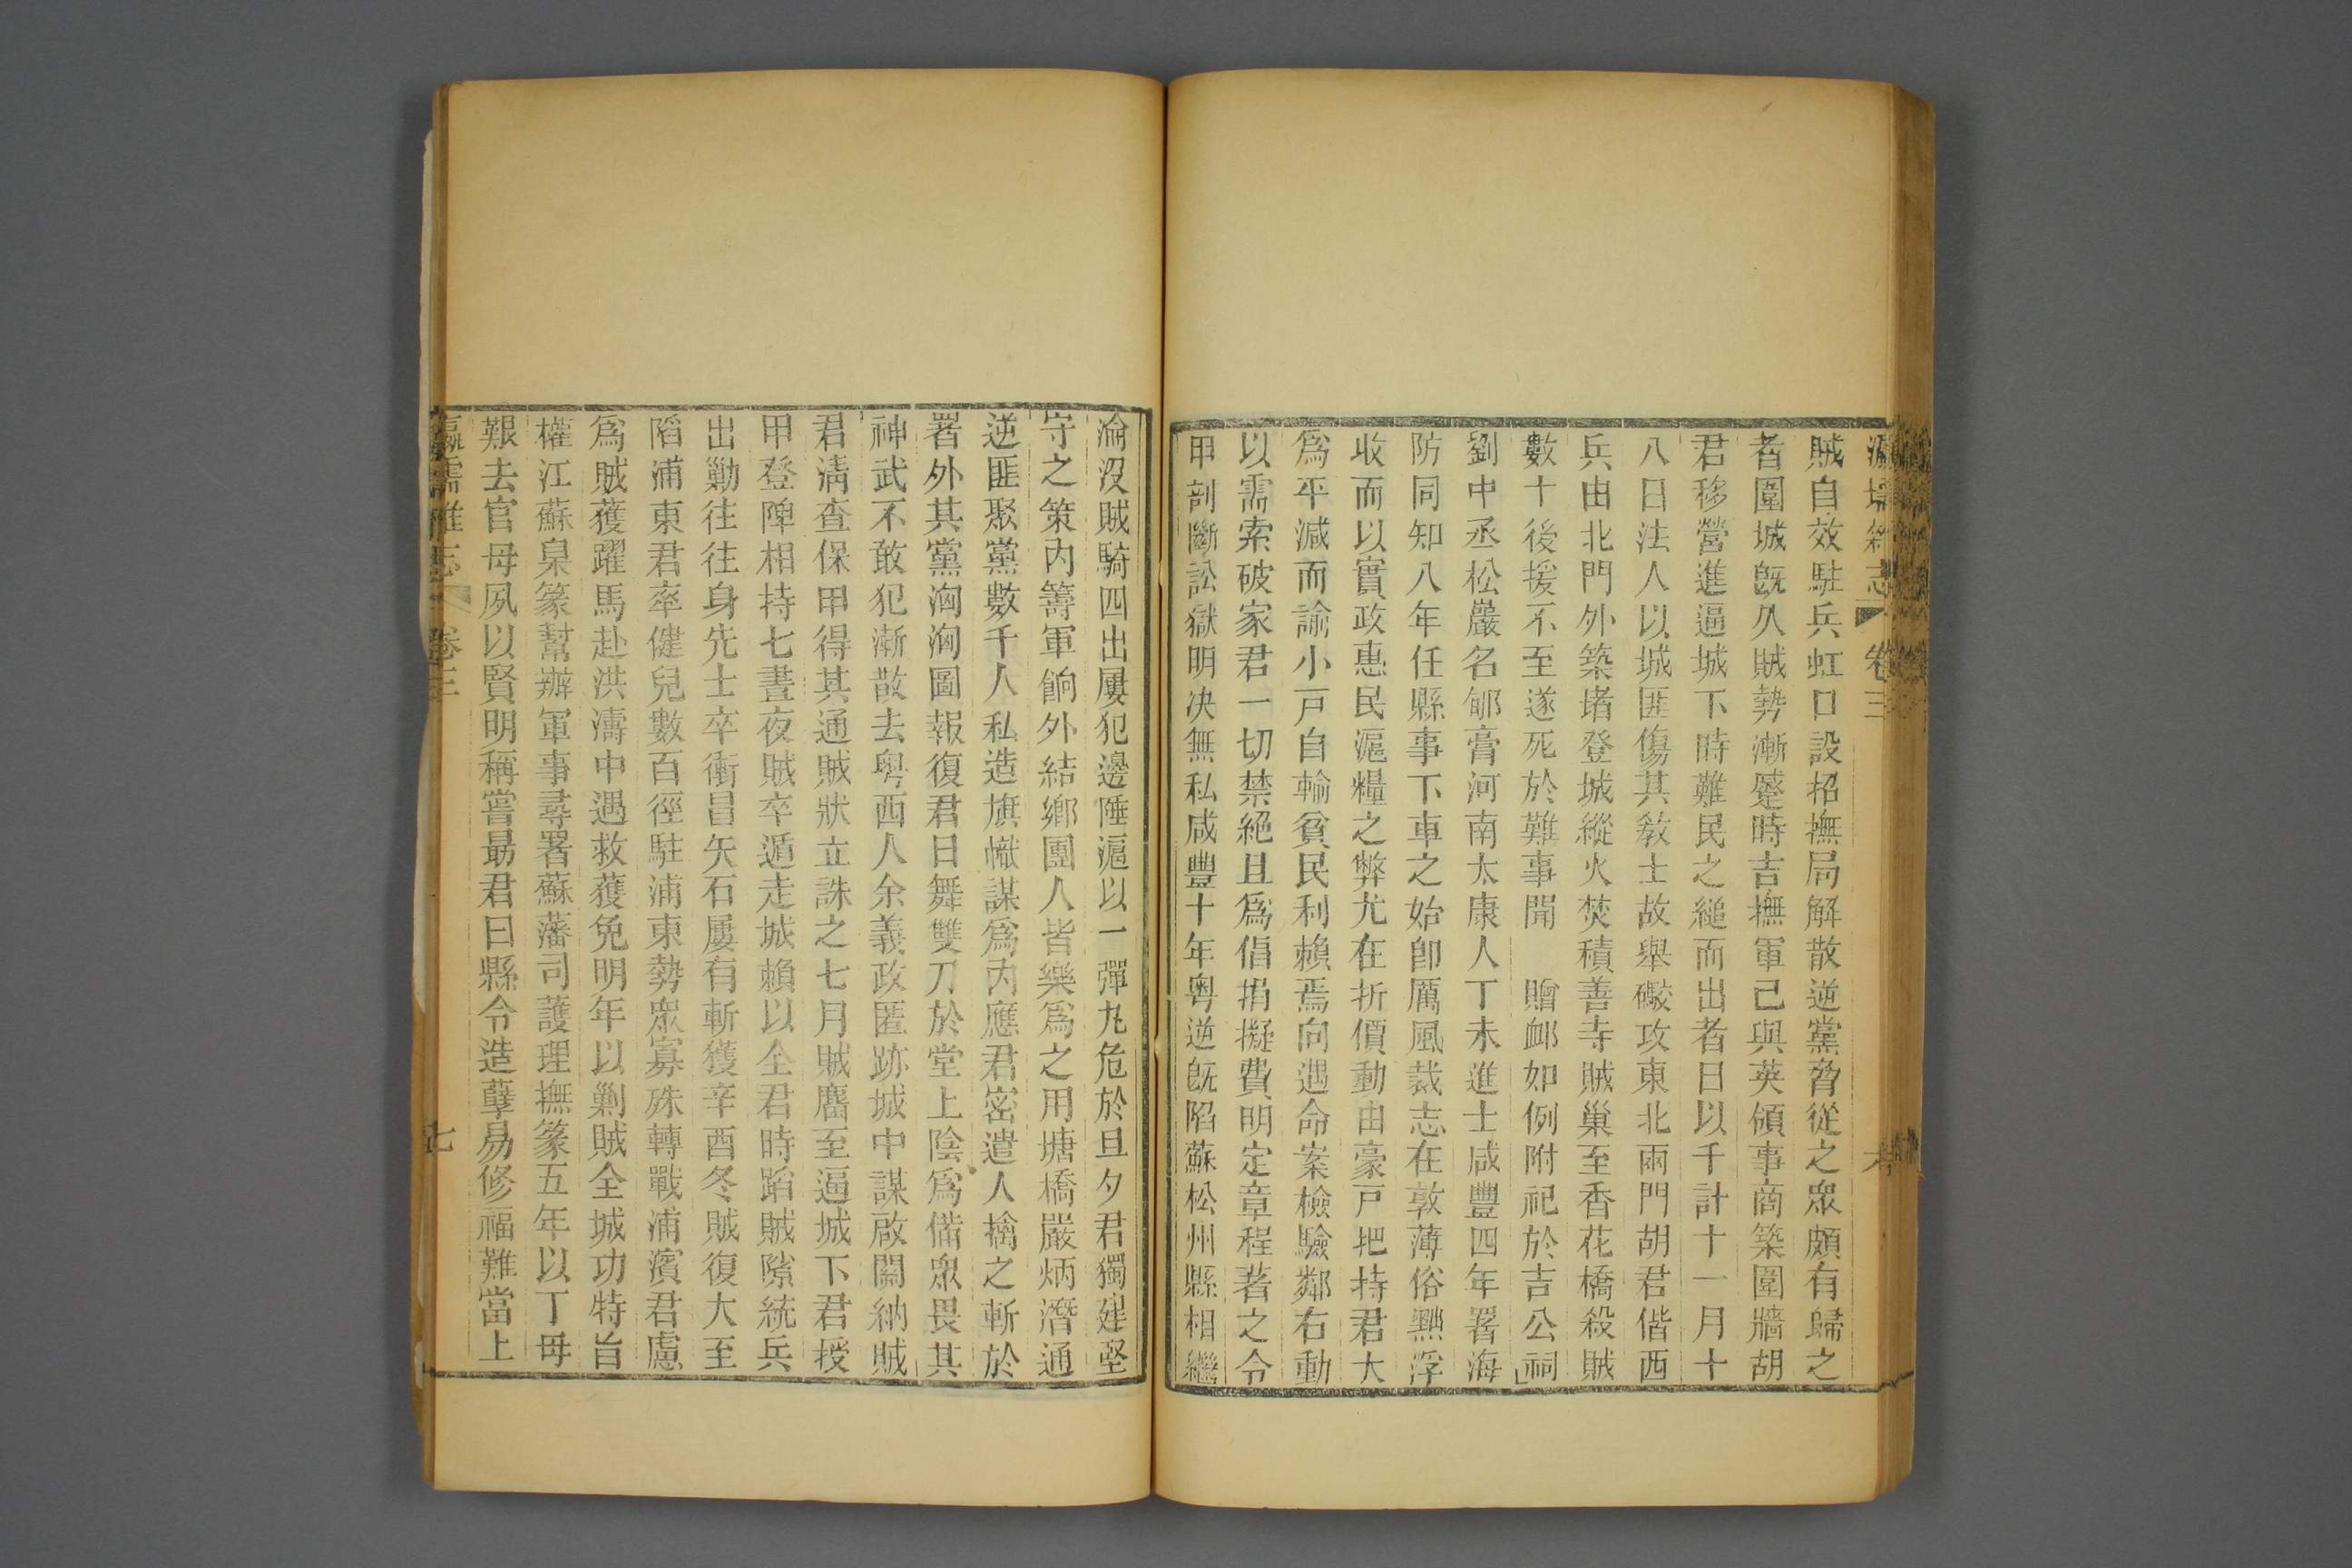 瀛壖雜志 卷三 六
賊自效駐兵虹口設招撫局解散逆黨脅從之眾頗有歸之
者圍城旣久賊勢漸蹙時吉撫軍已與英領事商築圍牆胡
君移營進逼城下時難民之縋而出者日以千計十一月十
八日法人以城匪傷其教士故舉礮攻東北兩門胡君偕西
兵由北門外築堵登城縱火焚積善寺賊巢至香花橋殺賊
數十後援不至遂死於難事聞　贈卹如例附祀於吉公祠
劉中丞松巖名郇膏河南太康人丁未進士咸豐四年署海
防同知八年任縣事下車之始卽厲風裁志在敦薄俗黜浮
收而以實政惠民滬糧之弊尤在折價動由豪戸把持君大
爲平減而諭小戸自輸貧民利賴焉向遇命案檢驗鄰右動
以需索破家君一切禁絕且爲倡捐擬費明定章程著之令
甲剖斷訟獄明决無私咸豐十年粵逆旣陷蘇松州縣相繼
淪沒賊騎四出屢犯邊陲滬以一彈丸危於旦夕君獨建堅
守之策內籌軍餉外結鄉團人皆樂爲之用塘橋嚴炳濳通
逆匪聚黨數千人私造旗幟謀爲內應君密遣人擒之斬於
署外其黨洶洶圖報復君日舞雙刀於堂上陰爲偕眾畏其
神武不敢犯漸散去粵西人余義政匿跡城中謀啟關納賊
君淸查保甲得其通賊狀立誅之七月賊麕至逼城下君授
甲登陴相持七晝夜賊卒遁走城賴以全君時蹈賊隙統兵
出勦往往身先士卒衝冒矢石屢有斬獲辛酉冬賊復大至
陷浦東君率健兒數百徑駐浦東勢眾寡殊轉戰浦濱君慮
爲賊獲躍馬赴洪濤中遇救獲免明年以剿賊全城功特旨
權江蘇臬篆幫辦軍事尋署蘇藩司護理撫篆五年以丁母
艱去官母夙以賢明稱嘗勗君曰縣令造孽易修福難當上
瀛壖雜志 卷三 七